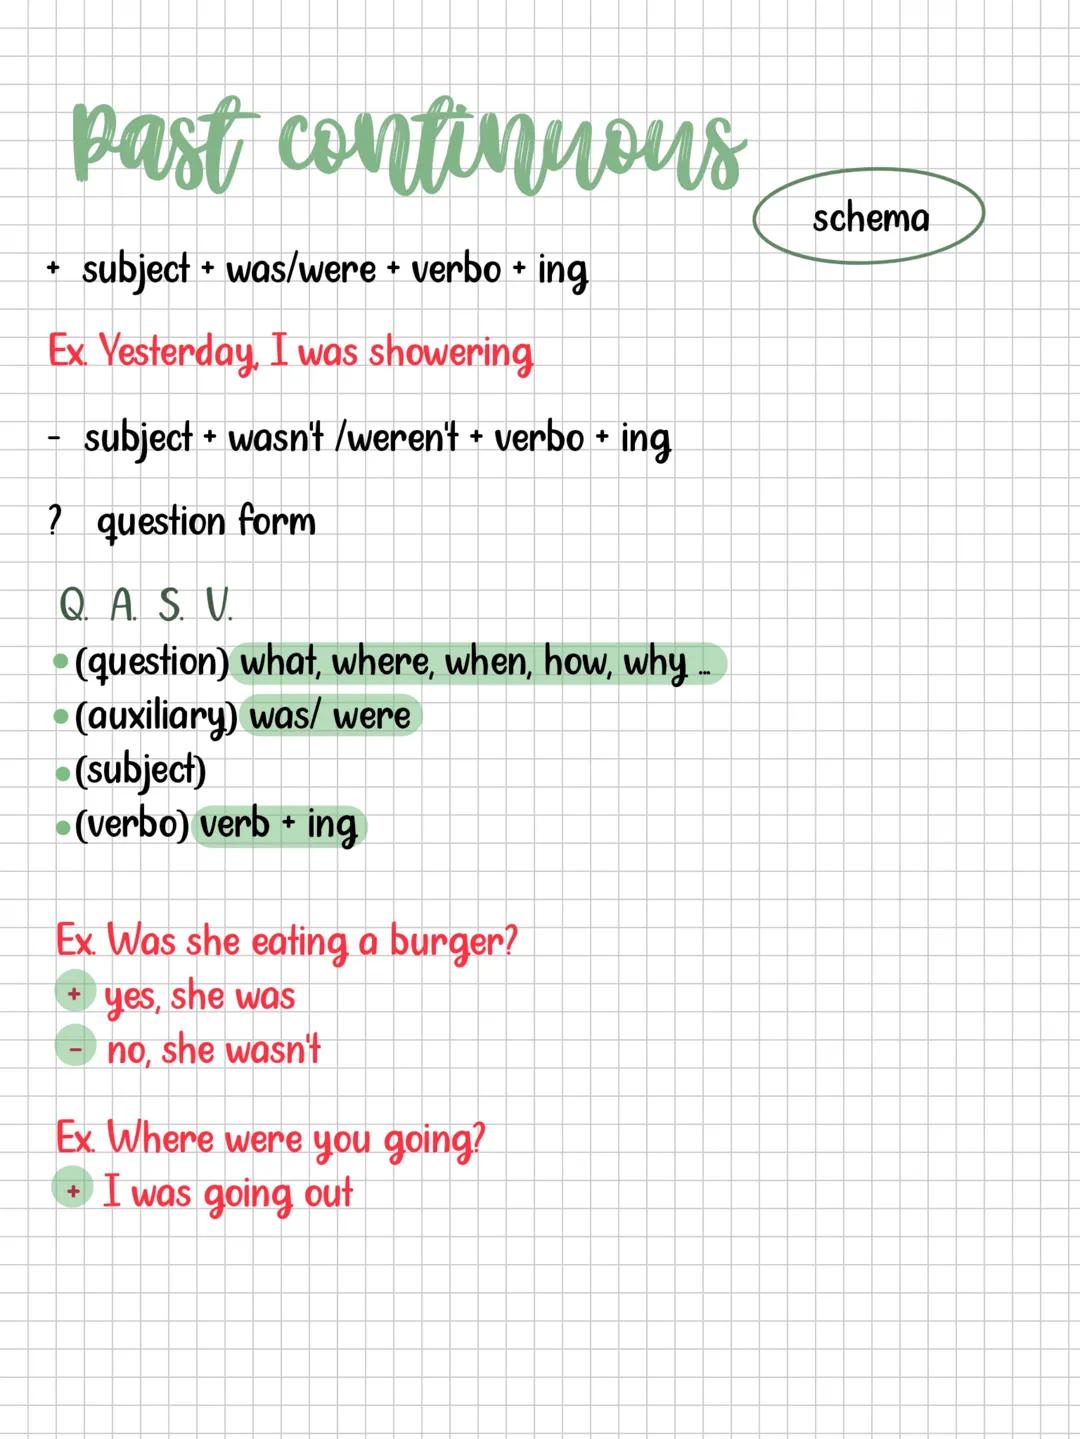 past continuous
schema
+ subject + was/were + verbo + ing
Ex. Yesterday, I was showering
- subject + wasn't /weren't + verbo + ing
? question form
Q. A. S. V.
• (question) what, where, when, how, why ...
• (auxiliary) was/ were
• (subject)
• (verbo) verb + ing
Ex. Was she eating a burger?
+ yes, she was
- no, she wasn't
Ex. Where were you going?
+ I was going out